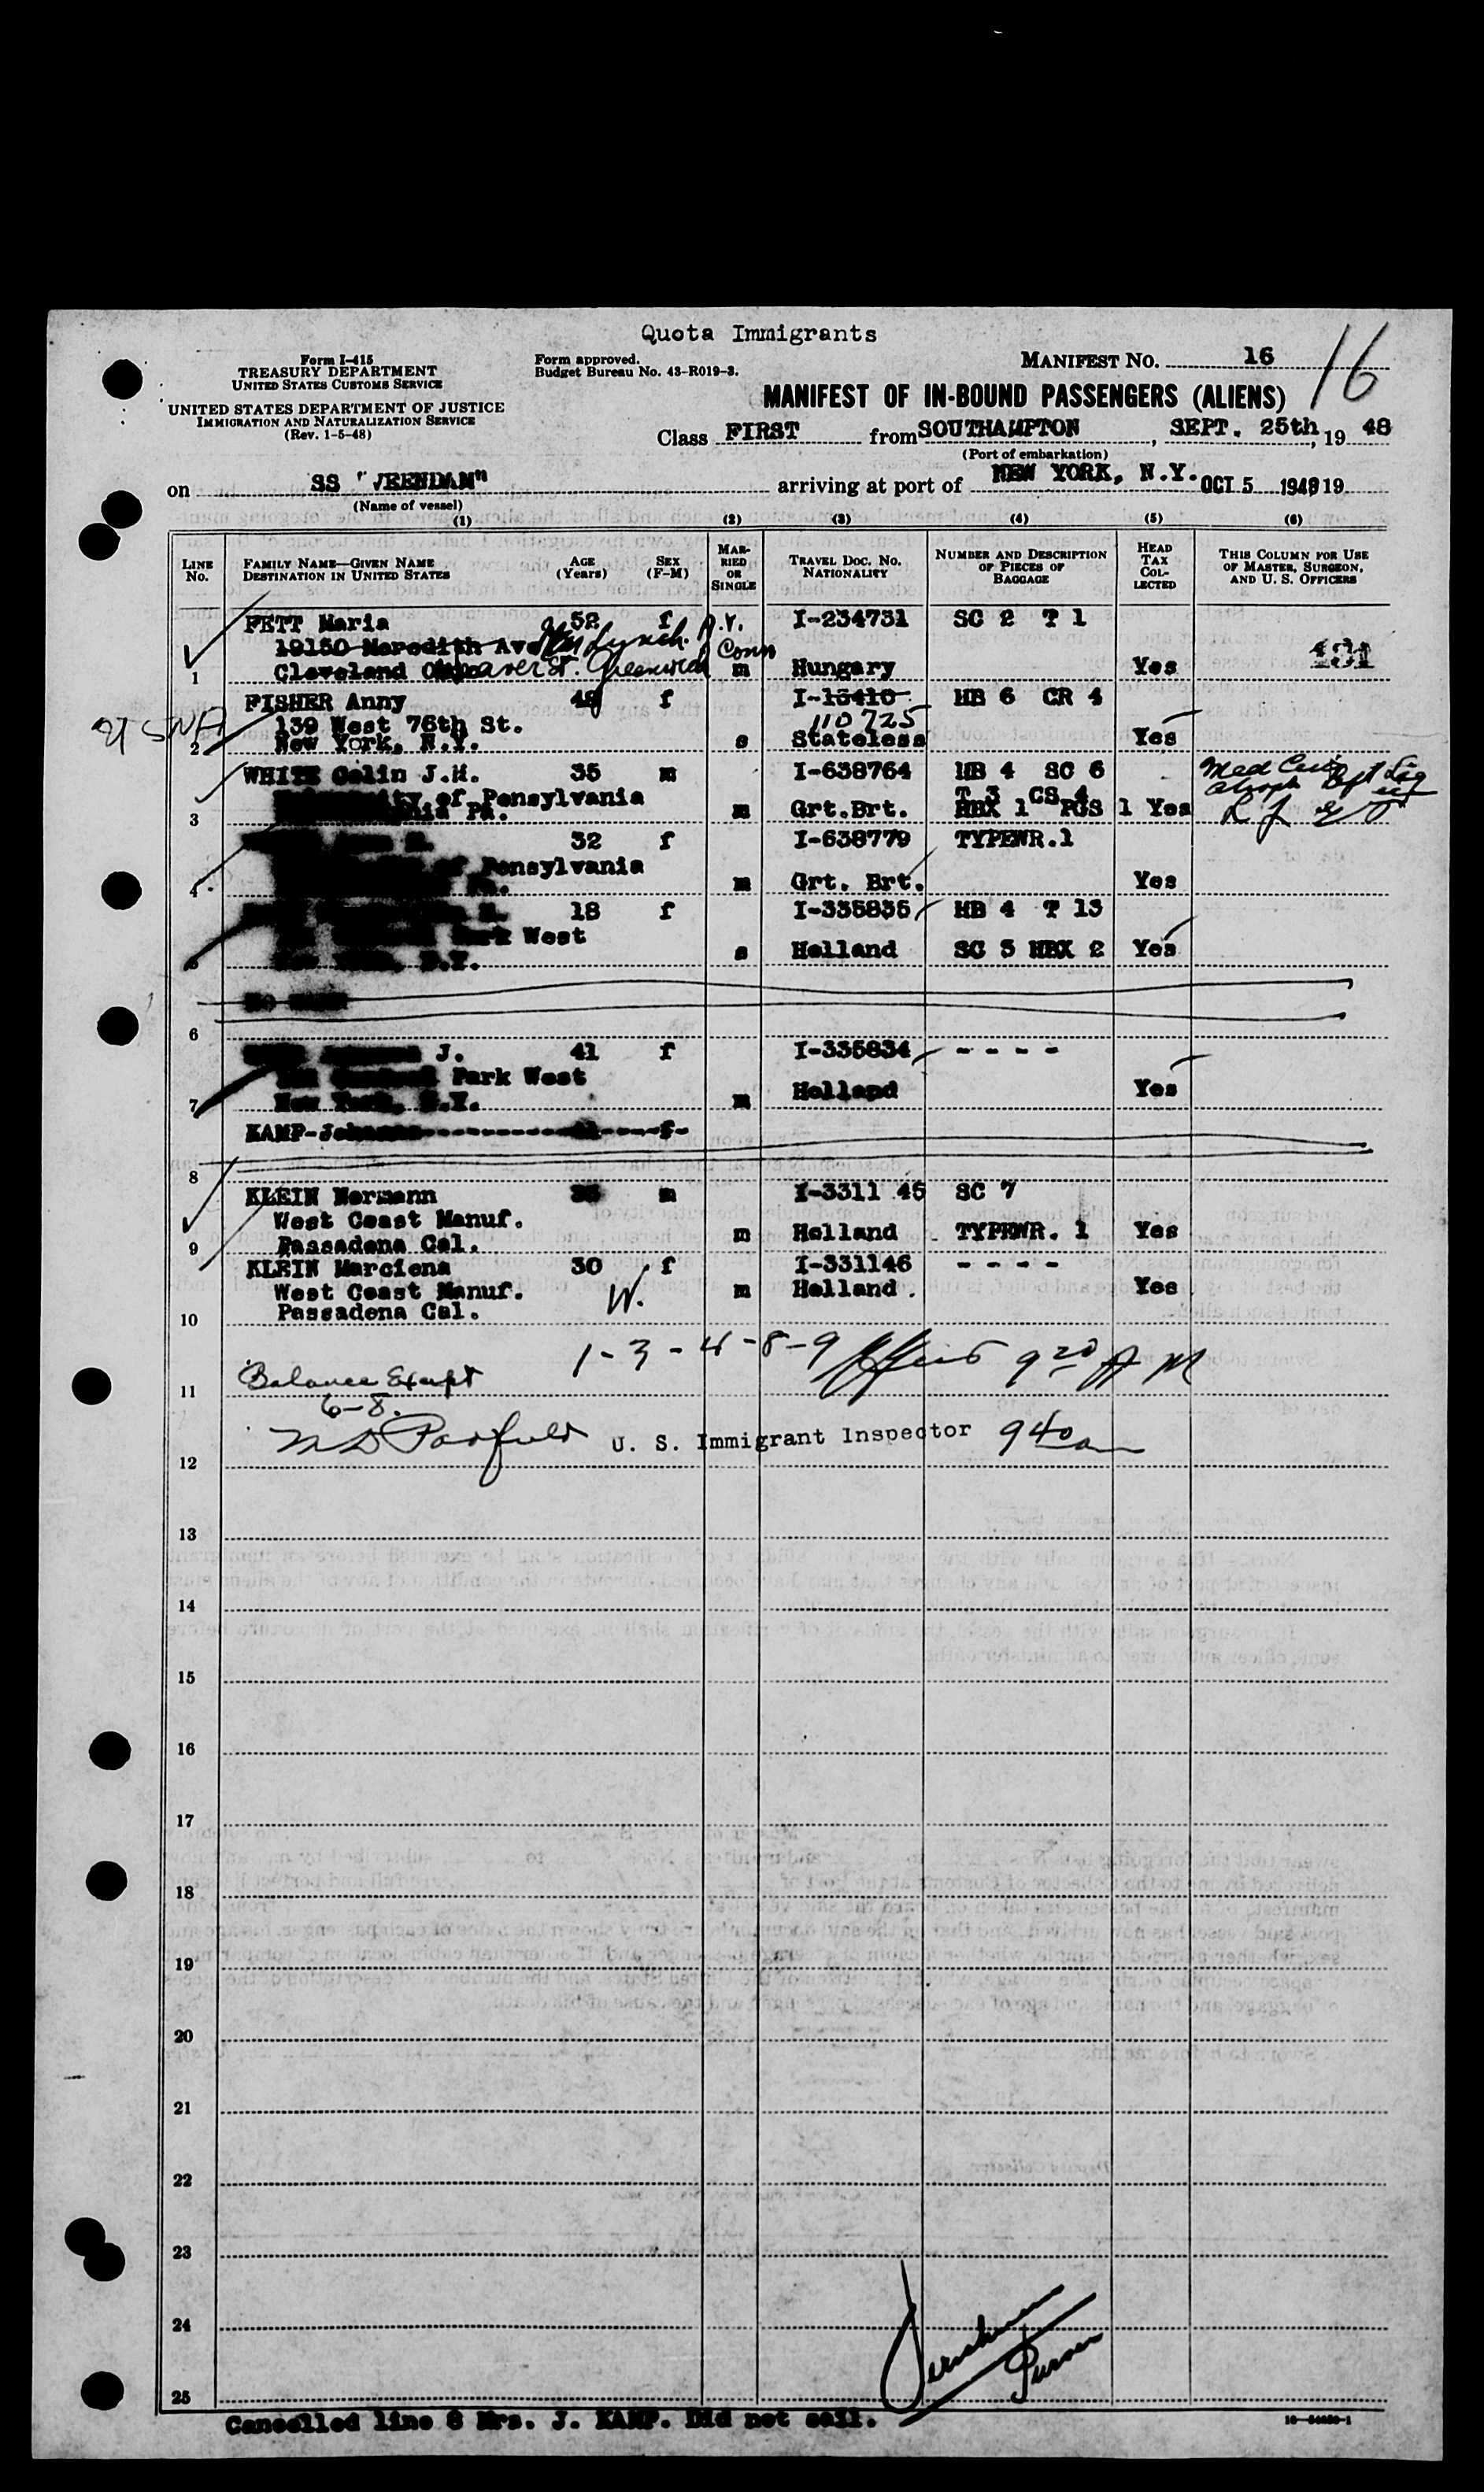 Quota Immigrants
Form I-415
TREASURY DEPARTMENT
UNITED STATES CUSTOMS SERVICE
UNITED STATES DEPARTMENT OF JUSTICE
IMMIGRATION AND NATURALIZATION SERVICE
(Rev. 1-5-48)
Form approved.
Budget Bureau No. 43-R019-3.
MANIFEST NO. 16
16
MANIFEST OF IN-BOUND PASSENGERS (ALIENS)
Class FIRST from SOUTHAMPTON, SEPT. 25th, 19 48
(Port of embarkation)
on SS "VEENDAM" arriving at port of NEW YORK, N.Y. OCT 5 1948 19
(Name of vessel)
(1) (2) (3) (4) (5) (6)
LINE No. FAMILY NAME—GIVEN NAME DESTINATION IN UNITED STATES AGE (Years) SEX (F-M) MARRIED OR SINGLE TRAVEL DOC. NO. NATIONALITY NUMBER AND DESCRIPTION OF PIECES OF BAGGAGE HEAD TAX COLLECTED THIS COLUMN FOR USE OF MASTER, SURGEON, AND U. S. OFFICERS
FETT Maria 52 f I-234731 SC 2 T 1
19150 Meredith Ave Lynch Conn
1 Cleveland St. Greenwich m Hungary Yes 131
FISHER Anny f I-13410 HB 6 CR 4
139 West 76th St. 110725
2 New York, N.Y. s Stateless Yes
WHITE Colin J.H. 35 m I-638764 HB 4 SC 6
of Pensylvania T 3 CS 4
3 Pa. m Grt.Brt. HBX 1 PGS 1 Yes
32 f I-638779 TYPEWR.1
of Pensylvania
4 m Grt. Brt. Yes
18 f I-335835 HB 4 T 13
Park West
5 N.Y. s Holland SC 5 HBX 2 Yes
6
J. 41 f I-335834 - - - -
Park West
7 New York, N.Y. m Holland Yes
KAMP-Johanna f-
8
KLEIN Hermann m I-3311 45 SC 7
West Coast Manuf.
9 Passadena Cal. m Holland TYPEWR. 1 Yes
KLEIN Marciena 30 f I-331146 - - - -
West Coast Manuf. W. m Holland Yes
10 Passadena Cal.
1-3-4-8-9 9 20 A M
11 Balance Exempt
6-8.
U. S. Immigrant Inspector 9 40 am
12
13
14
15
16
17
18
19
20
21
22
23
24
Purser
25
Cancelled line 8 Mrs. J. KAMP. Did not sail.